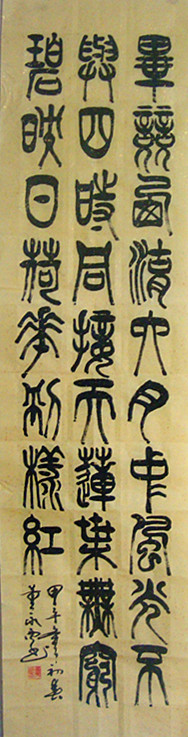 畢竟西湖六月中風光不
與四時同接天蓮葉無窮
碧映日荷花別樣紅
甲午年初春
董永